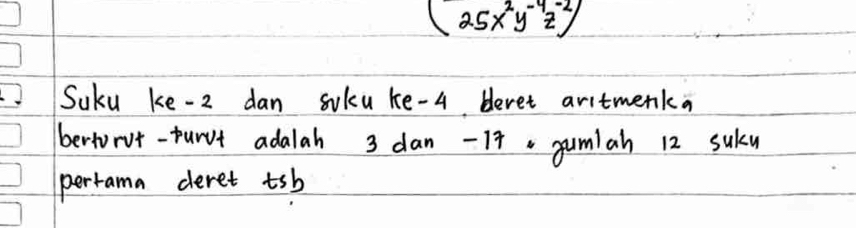 25x²y⁻⁴z⁻²
Suku ke-2 dan suku ke-4 deret aritmetika
berturut-turut adalah 3 dan -17. jumlah 12 suku
pertama deret tsb